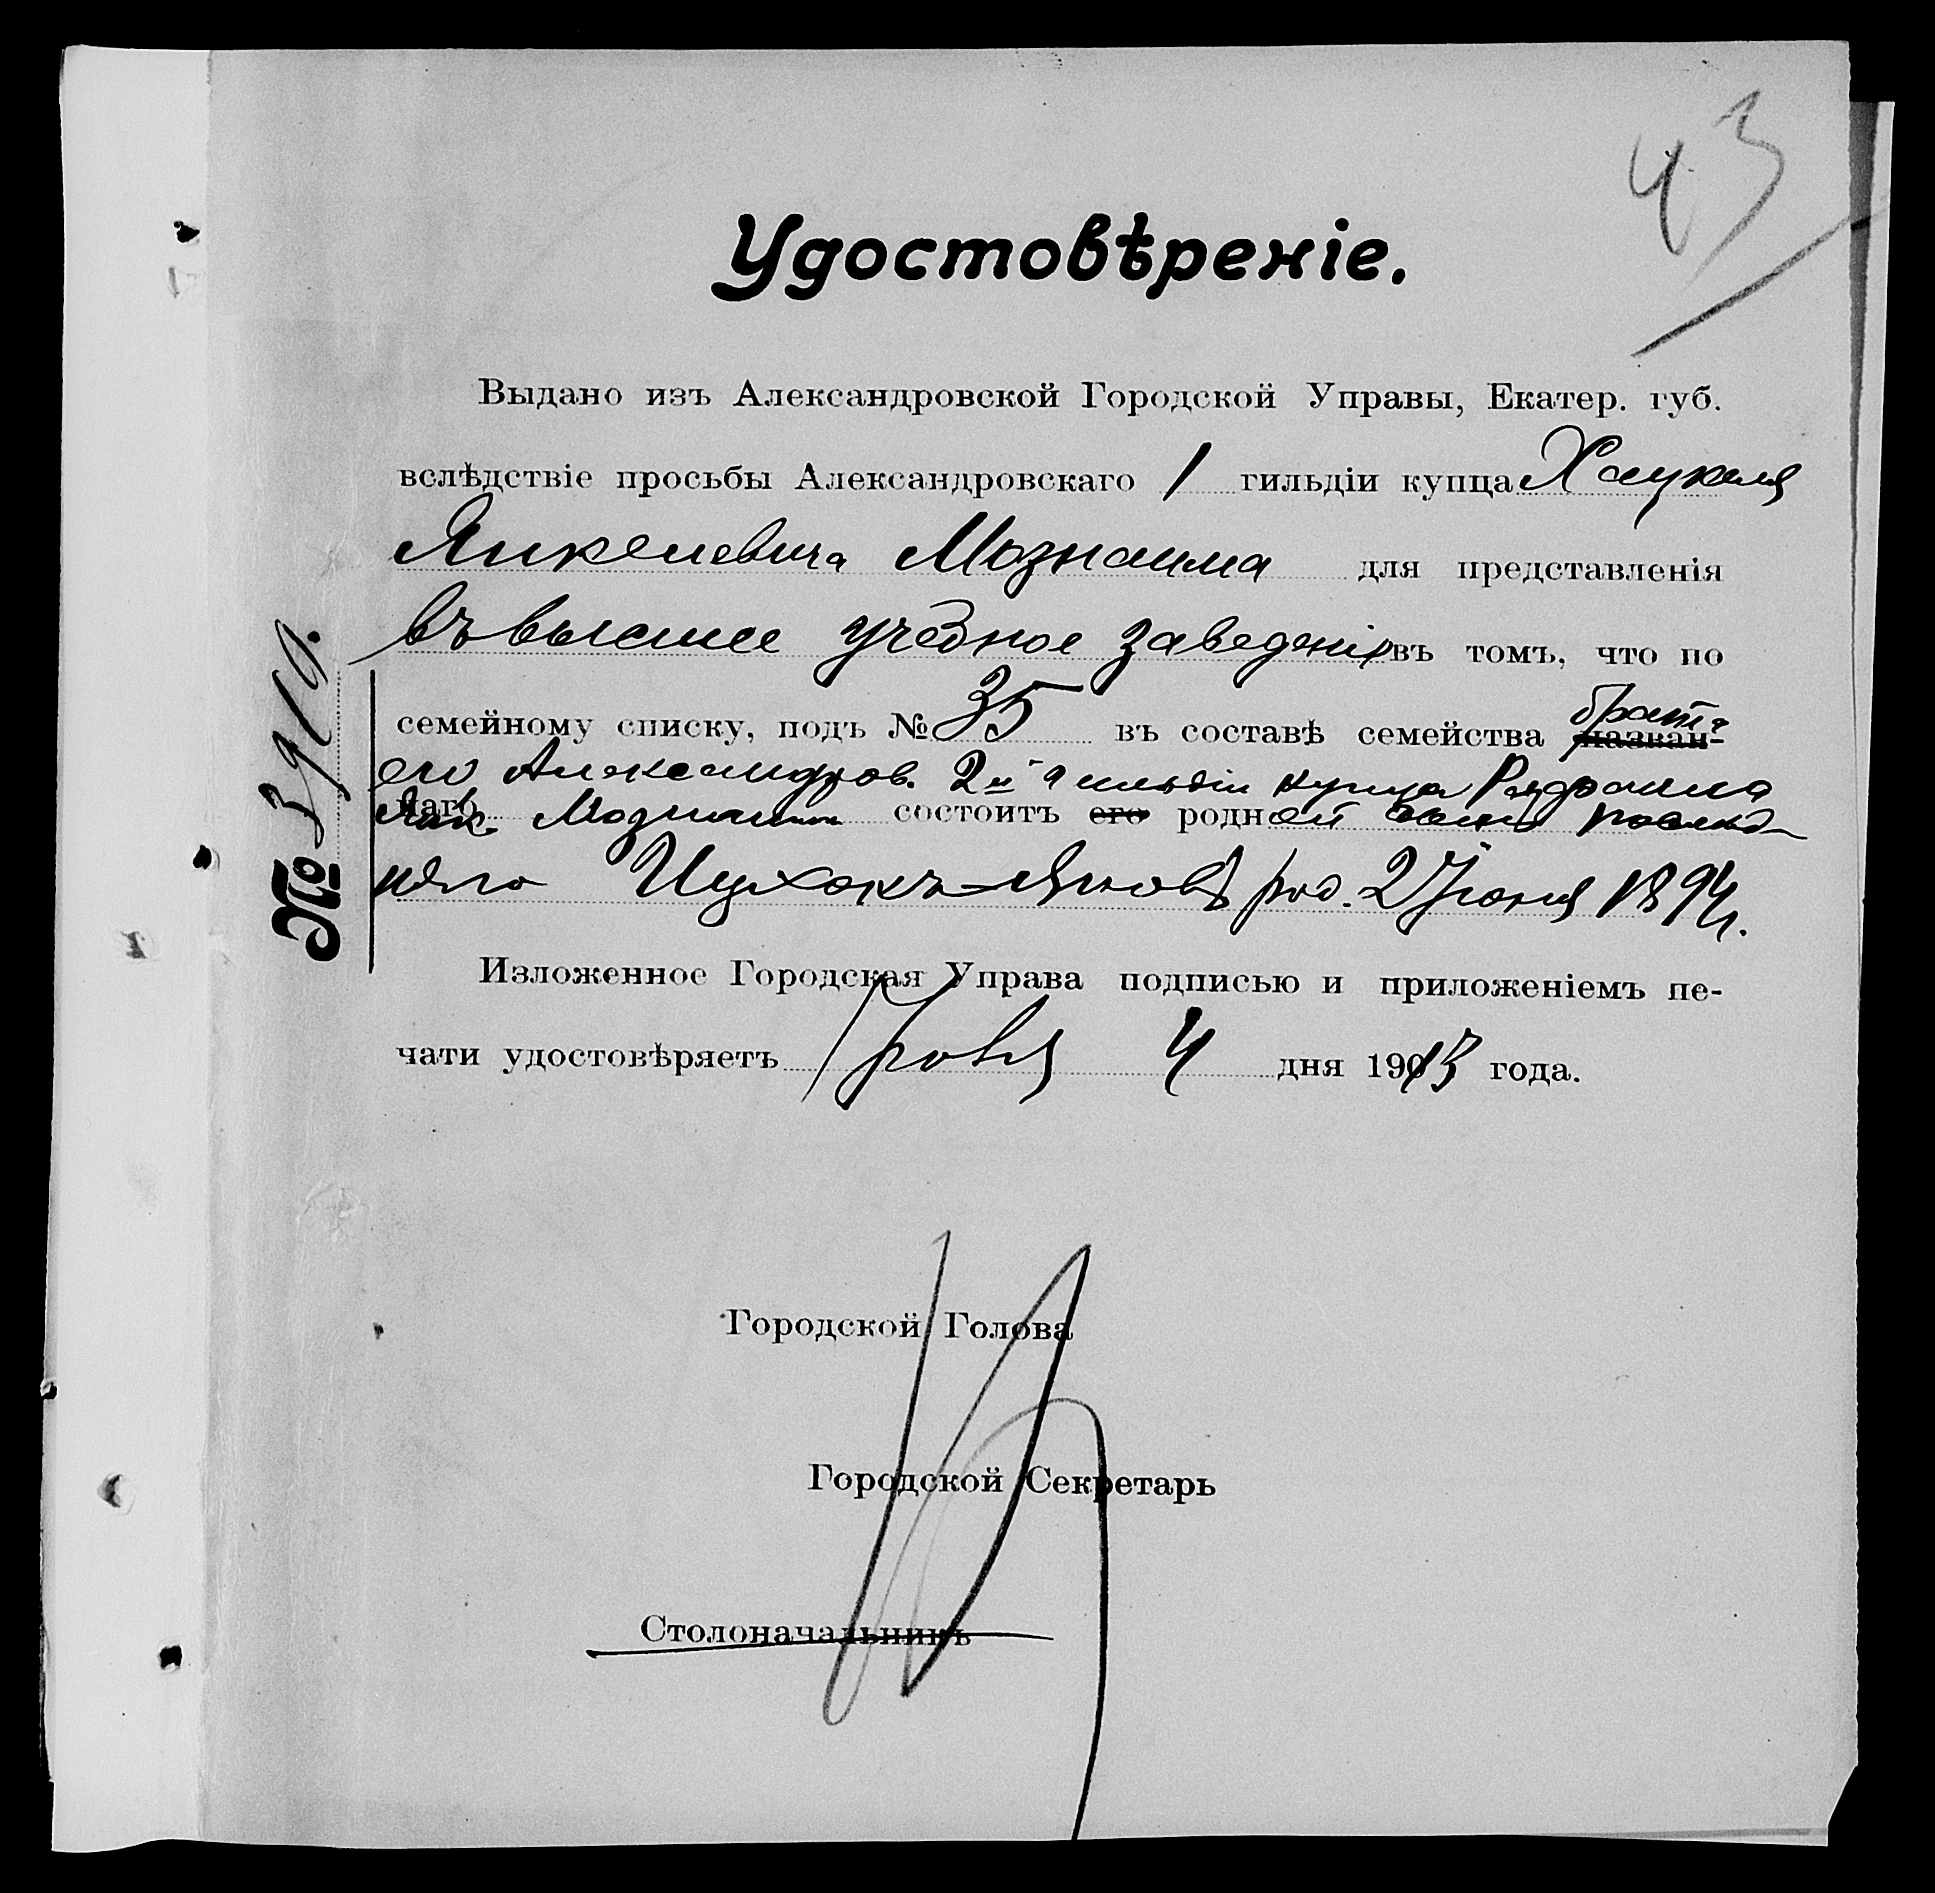 43
Удостовѣреніе.
Выдано изъ Александровской Городской Управы, Екатер. губ.
вслѣдствіе просьбы Александровскаго 1 гильдіи купца Хацкеля
Янкелевича Мознаима для представленія
въ высшее учебное заведеніе въ томъ, что по
семейному списку, подъ № 35 въ составѣ семейства брата назван-
его Александров. 2й гильдіи купца
наго Янк. Мознаима состоитъ его родной сынъ послѣд-
няго Ицхокъ-Яковъ род. 2 Іюня 1894 г.
Изложенное Городская Управа подписью и приложеніемъ пе-
чати удостовѣряетъ 4 дня 1913 года.
Городской Голова
Городской Секретарь
Столоначальникъ
№ 3910.